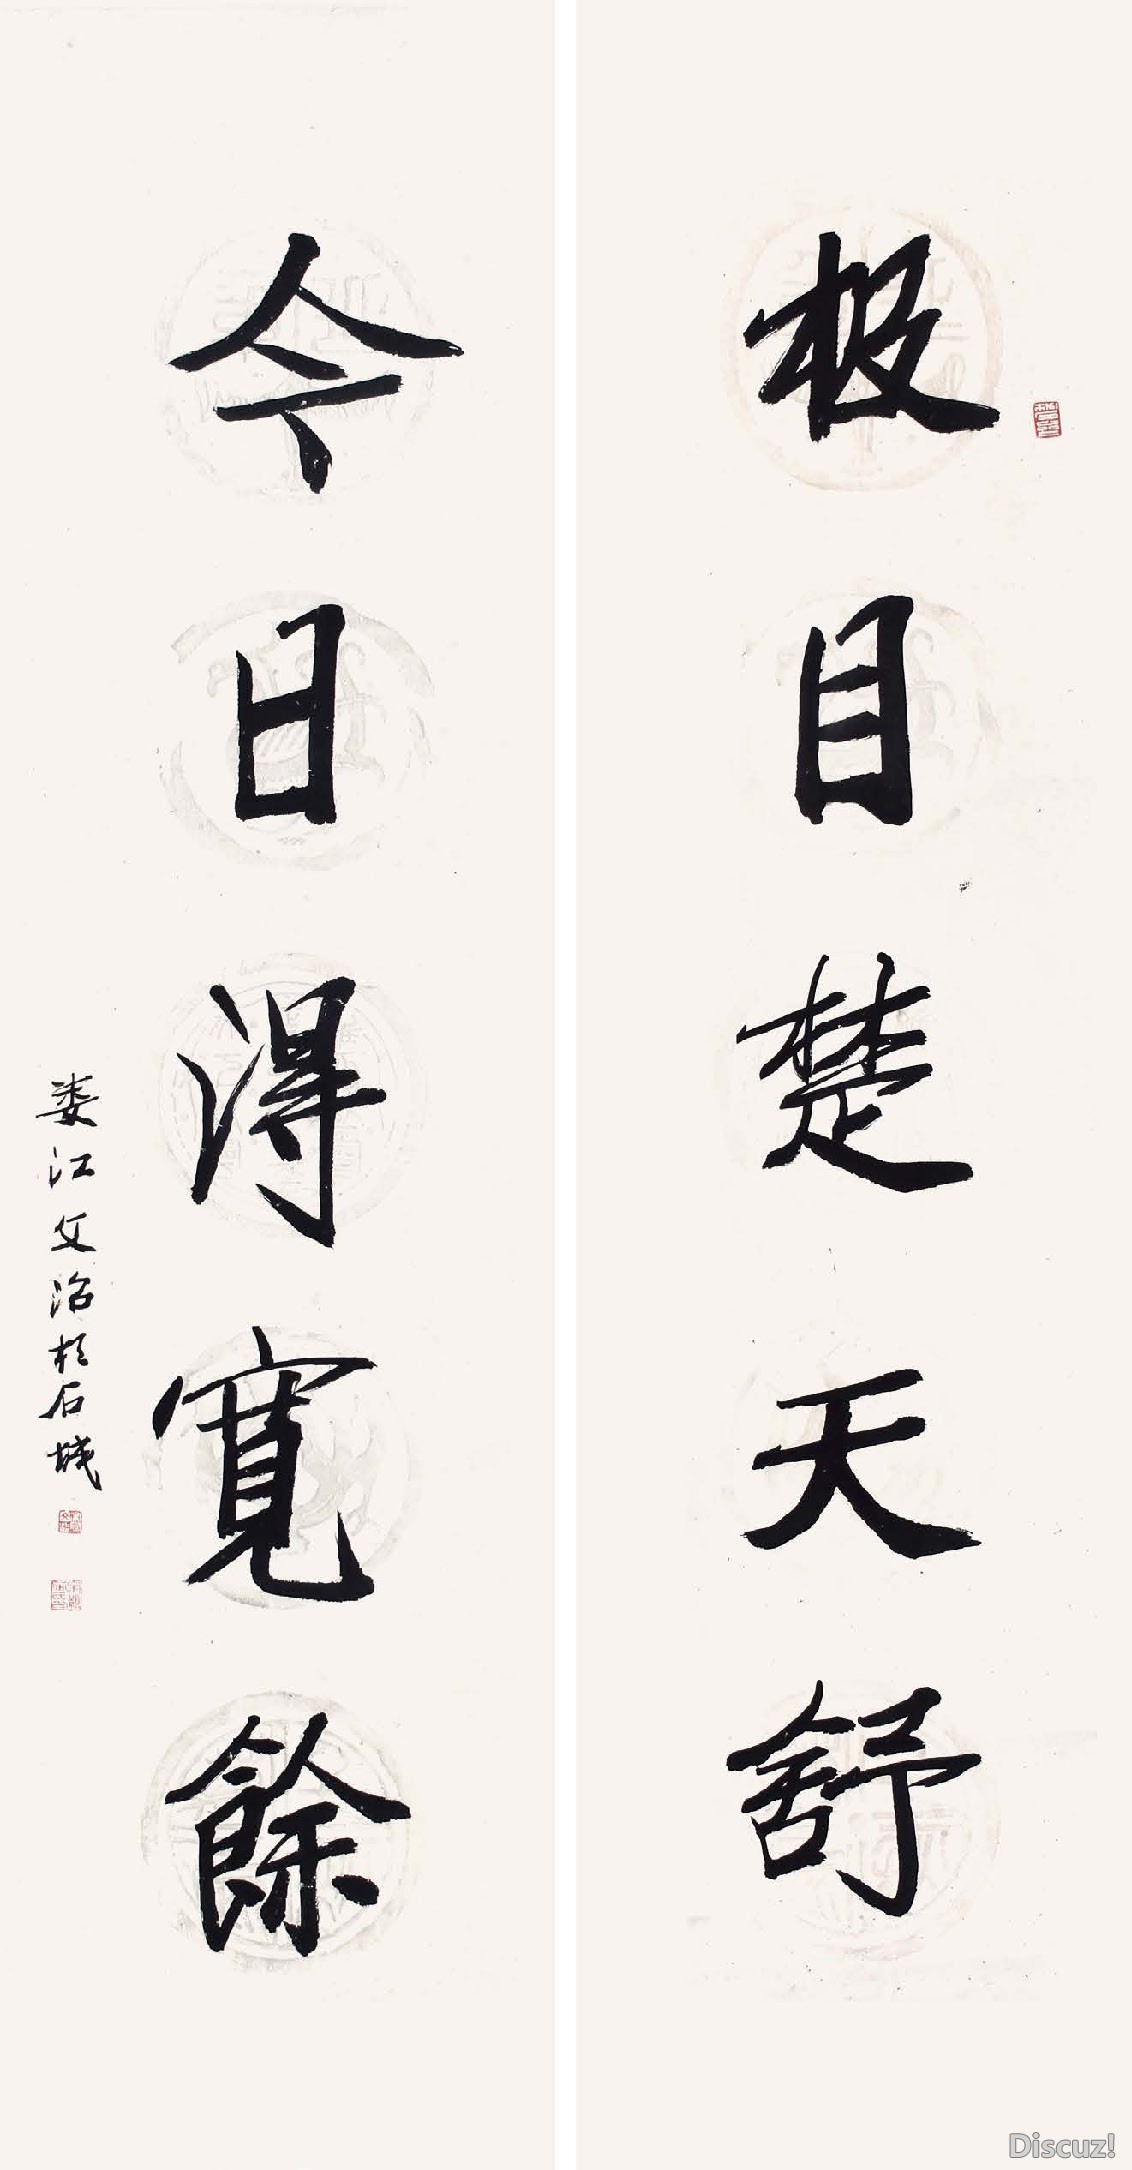 极目楚天舒
今日得寬餘
娄江文治於石城
Discuz!